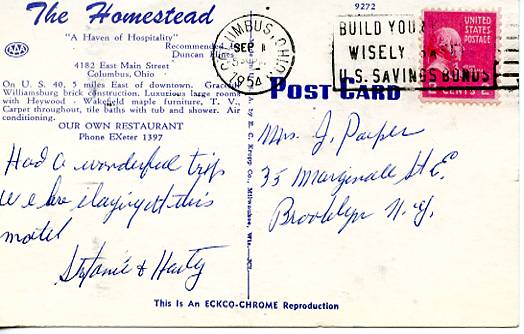 The Homestead
"A Haven of Hospitality"
AAA
Recommended by
Duncan Hines
4182 East Main Street
Columbus, Ohio
On U. S. 40, 5 miles East of downtown. Graceful
Williamsburg brick construction. Luxurious large rooms
with Heywood - Wakefield maple furniture, T. V.,
Carpet throughout, tile baths with tub and shower. Air
conditioning.
OUR OWN RESTAURANT
Phone EXeter 1397
Had a wonderful trip
We are staying at this
motel
Stefanie &
9272
COLUMBUS, OHIO
SEP 1
1954
BUILD YOU
WISELY
U.S. SAVINGS BONDS
UNITED
STATES
POSTAGE
2 CENTS 2
POST CARD
Pub. by E. C. Kropp Co., Milwaukee, Wis.
Mrs. J.
35 Marginale St E.
Brooklyn N.Y.
This Is An ECKCO-CHROME Reproduction